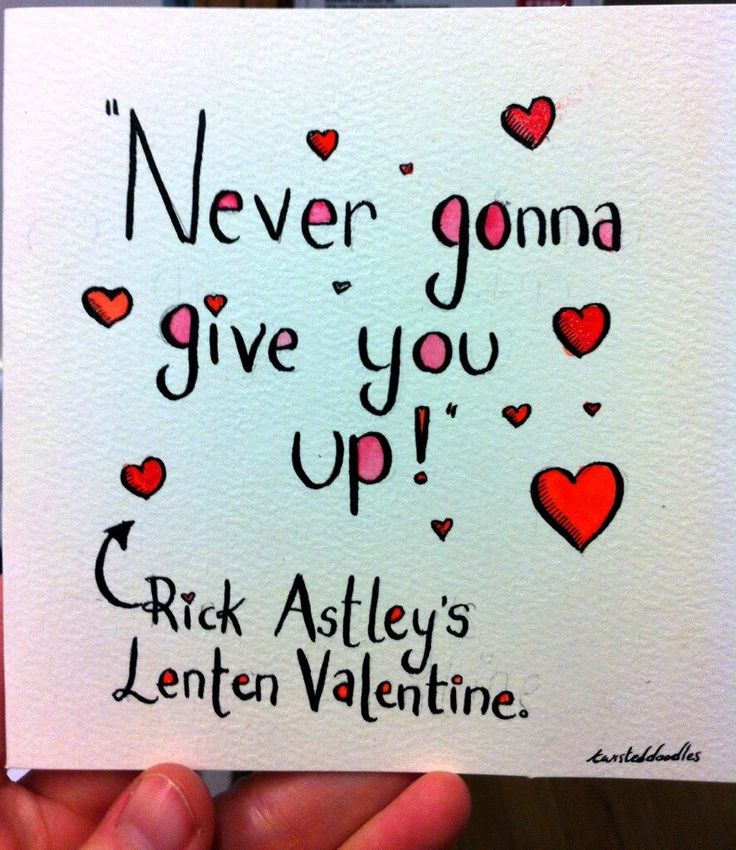 "Never gonna
give you
up!"
Rick Astley's
Lenten Valentine.
twisteddoodles